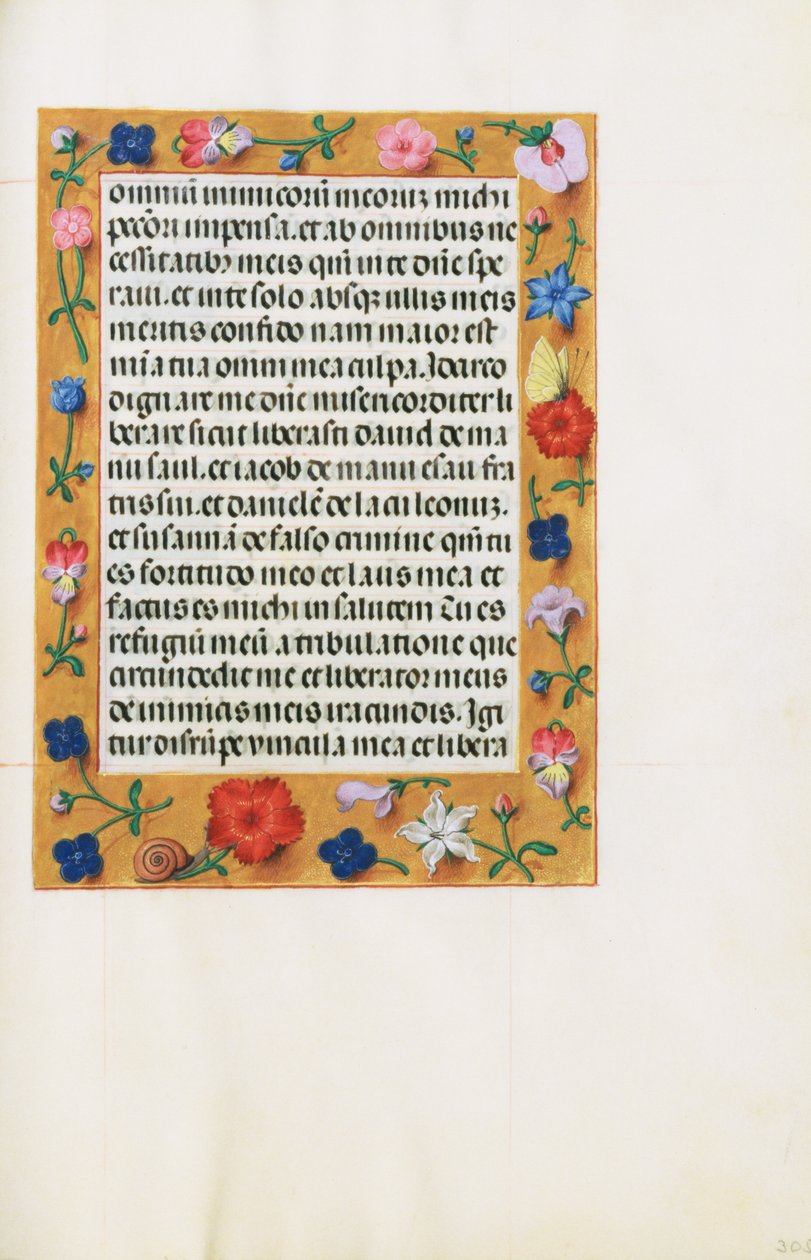 omniũ inimicorũ meoruꝫ michi
peccõri impensa. et ab omnibus ne
cessitatibꝫ meis qm̃ in te dñe spe
raui. et in te solo absqꝫ ullis meis
meritis confido nam maior est
mĩa tua omni mea culpa. Idarco
dignare me dñe misericorditer li
berare sicut liberasti dauid de ma
nu saul. et iacob de manu esau fra
tris sui. et danielẽ de lacu leonuꝫ.
et susannã de falso crimine qm̃ tu
es fortitudo meo et laus mea et
factus es michi in salutem Tu es
refugiũ meũ a tribulatione que
circundedit me et liberator meus
de inimicis meis iracundis. Igi
tur disrũpe vincula mea et libera